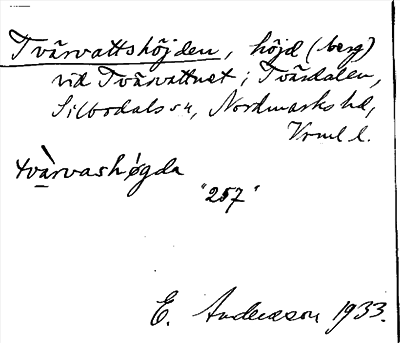 Tvärvattshöjden, höjd (berg)
vid Tvärvattnet i Tvärdalen,
Silbodals sn, Nordmarks hd,
Vrml l.
tvàrvashøgda
"257"
E. Andersson 1933.